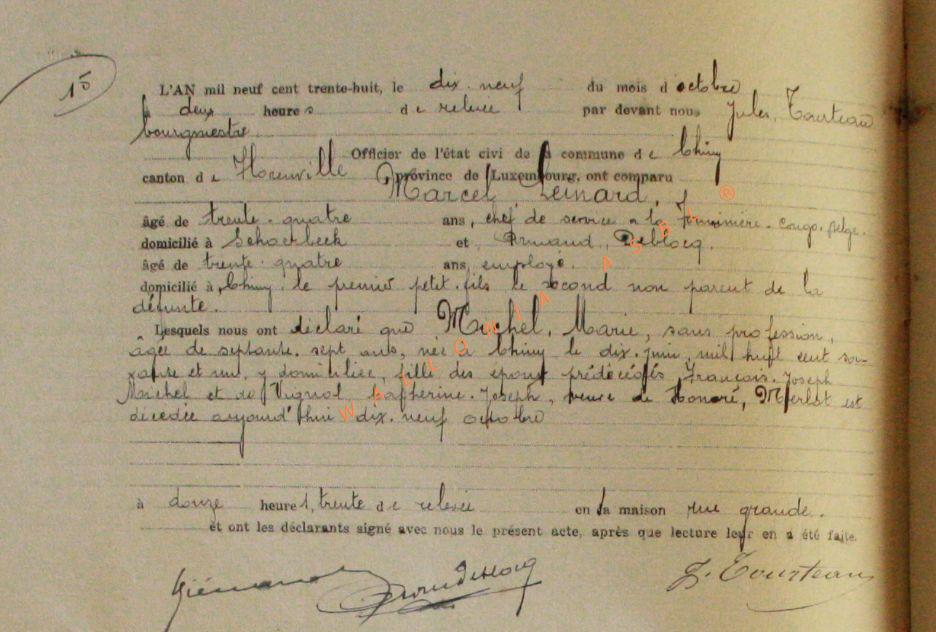 15
L'AN mil neuf cent trente-huit, le dix. neuf du mois d'octobre
à deux heures de relevée par devant nous Jules, Tourteau
bourgmestre
Officier de l'état civi de la commune de Chiny
canton de Florenville, province de Luxembourg, ont comparu
Marcel,
âgé de trente-quatre ans, chef de service à la Forminière. Congo. Belge.
domicilié à Schaerbeek et Armand, Deblocq.
âgé de trente-quatre ans, employé.
domicilié à, Chiny. le premier petit-fils le second non parent de la
défunte.
Lesquels nous ont déclaré que Michel, Marie, sans profession,
âgée de septante. sept ans, née à Chiny le dix. juin, mil huit cent soi-
xante et un, y domiciliée, fille des époux prédécédés, François. Joseph
Michel et de Vignol Catherine. Joseph, veuve de Honoré, Merlot est
décédée aujourd'hui dix. neuf octobre
à douze heures, trente de relevée en la maison rue grande.
et ont les déclarants signé avec nous le présent acte, après que lecture leur en a été faite.
J. Tourteau